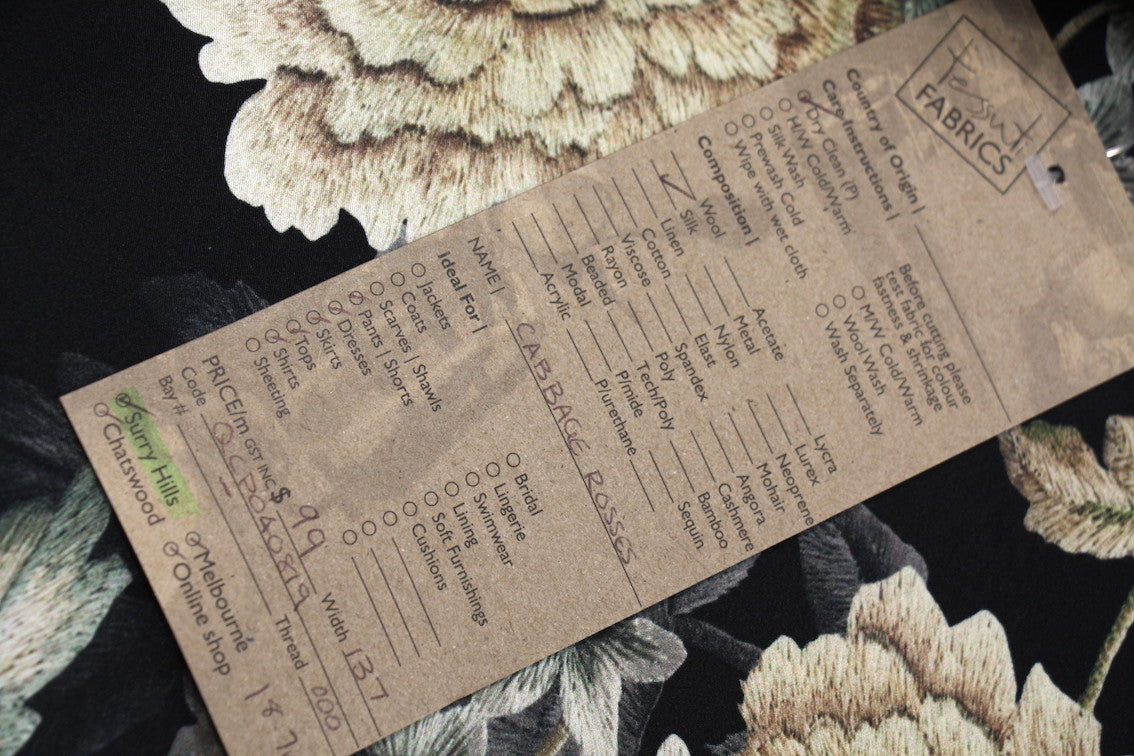 Tessuti
FABRICS
Country of Origin |
Care Instructions |
Dry Clean (P)
H/W Cold/Warm
Silk Wash
Prewash Cold
Wipe with wet cloth
Before cutting please
test fabric for colour
fastness & shrinkage
M/W Cold/Warm
Wool Wash
Wash Separately
Composition |
Wool
Silk
Linen
Cotton
Viscose
Rayon
Beaded
Modal
Acrylic
Acetate
Metal
Nylon
Elast
Spandex
Poly
Tech/Poly
P/mide
P/urethane
Lycra
Lurex
Neoprene
Mohair
Angora
Cashmere
Bamboo
Sequin
NAME | CABBAGE ROSSES
Ideal For |
Jackets
Coats
Scarves | Shawls
Pants | Shorts
Dresses
Skirts
Tops
Shirts
Sheeting
Bridal
Lingerie
Swimwear
Lining
Soft Furnishings
Cushions
PRICE/m GST INC $ 99 Width 137
Code QCD040819 Thread 000
Bay # –
Surry Hills
Chatswood
Melbourne
Online shop